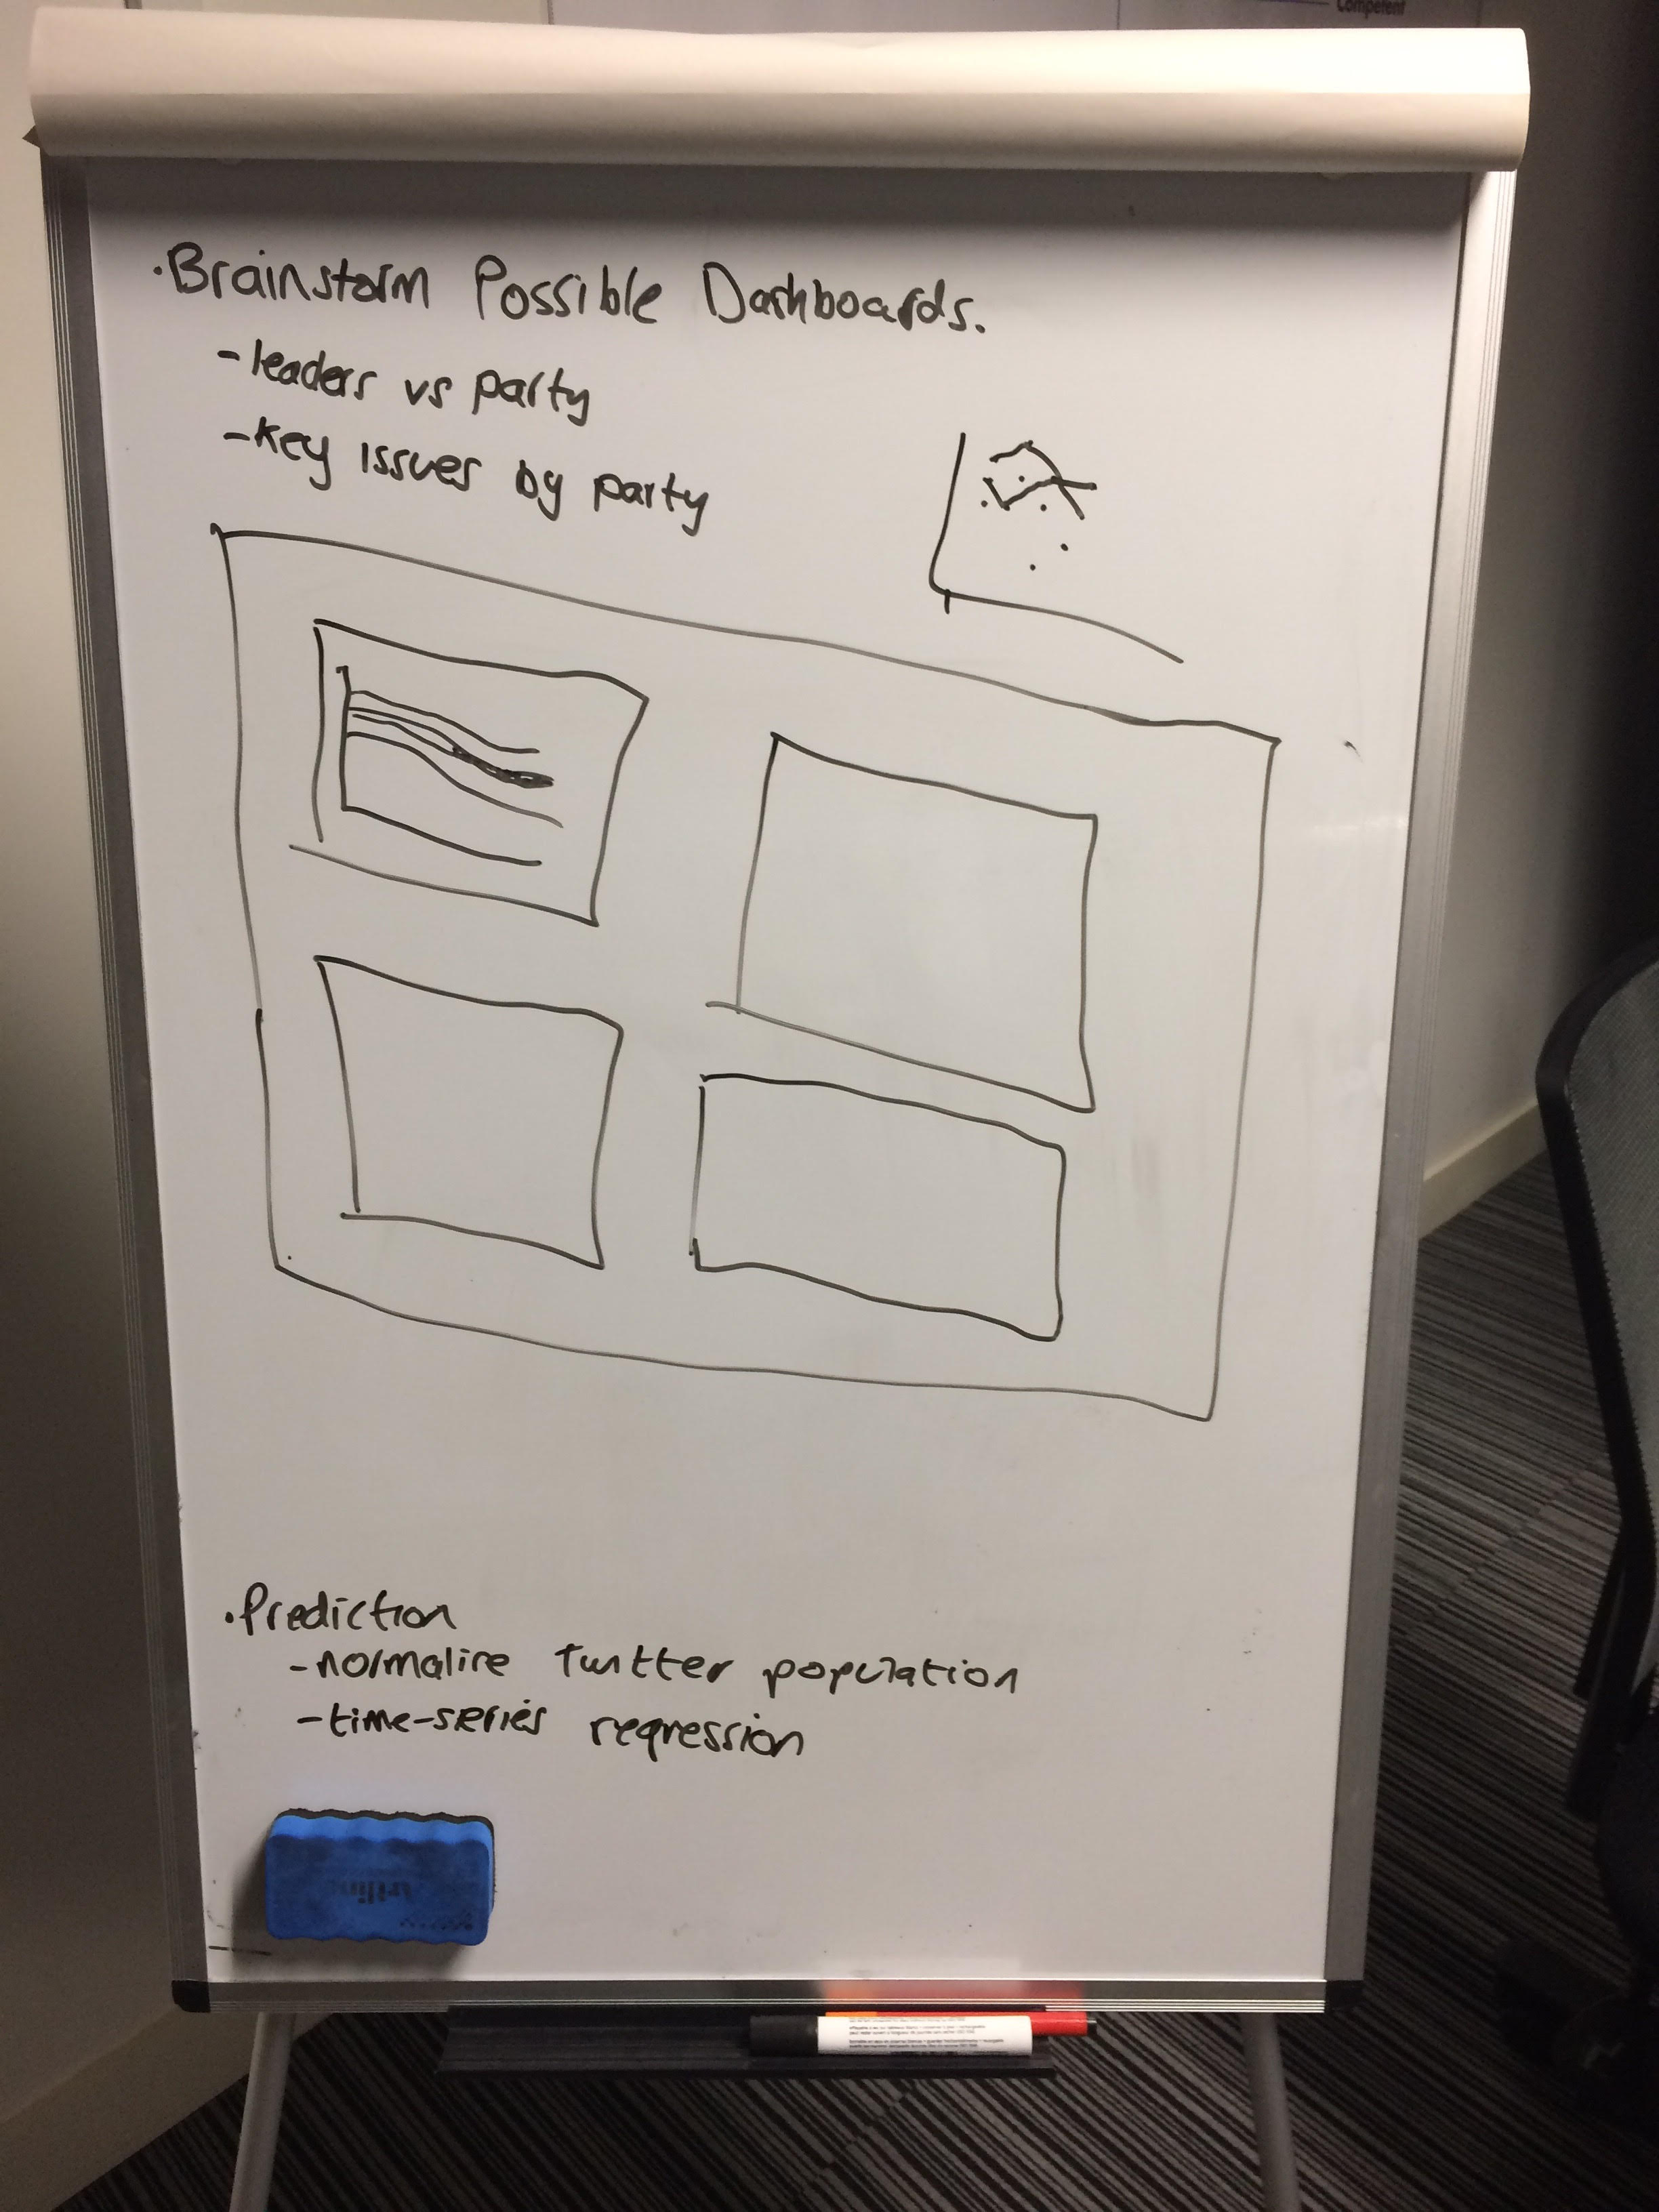 Competent
· Brainstorm Possible Dashboards.
- leaders vs party
- key issues by party
· Prediction
- normalize Twitter population
- time-series regression